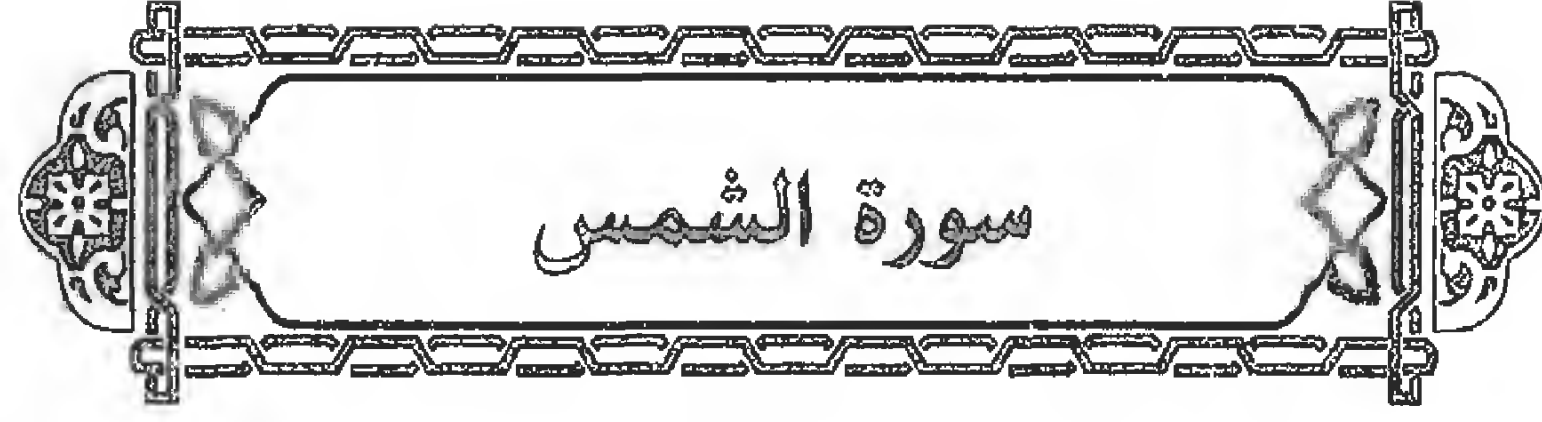 سورة الشمس